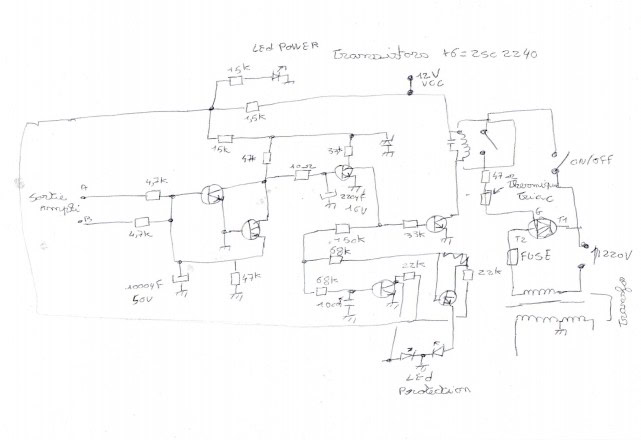 LED POWER
Transistors t6 = 2SC 2240
1,5k
12V
VDC
1,5k
15k
47k
33k
10Ω
220µF
16V
4,7k
Sortie
Ampli
A
B
4,7k
1000µF
50V
47k
150k
33k
68k
68k
22k
22k
LED
Protection
47Ω
ON/OFF
G
T1
T2
FUSE
220V
Transfo